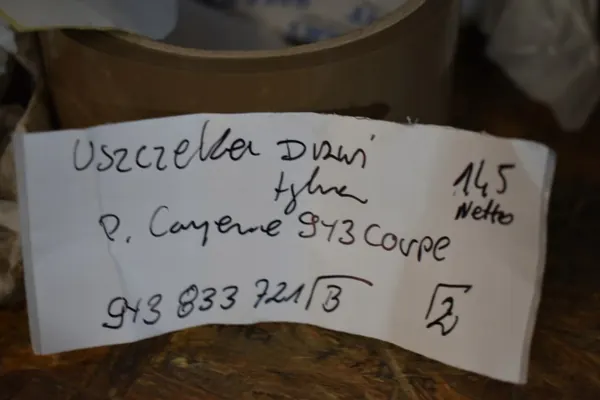 Uszczelka Drzwi
tylna
145
Netto
P. Cayenne 943 Coupe
943 833 721 B
2